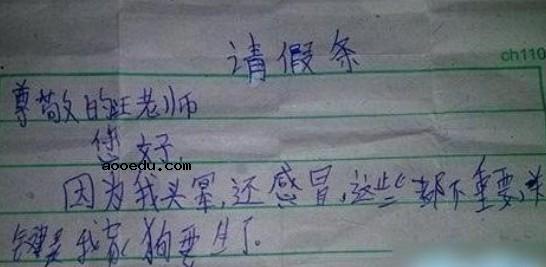 请假条
ch110
尊敬的旺老师
您好
aooedu.com
因为我头晕,还感冒,这些都不重要,关
键是我家狗要生了。